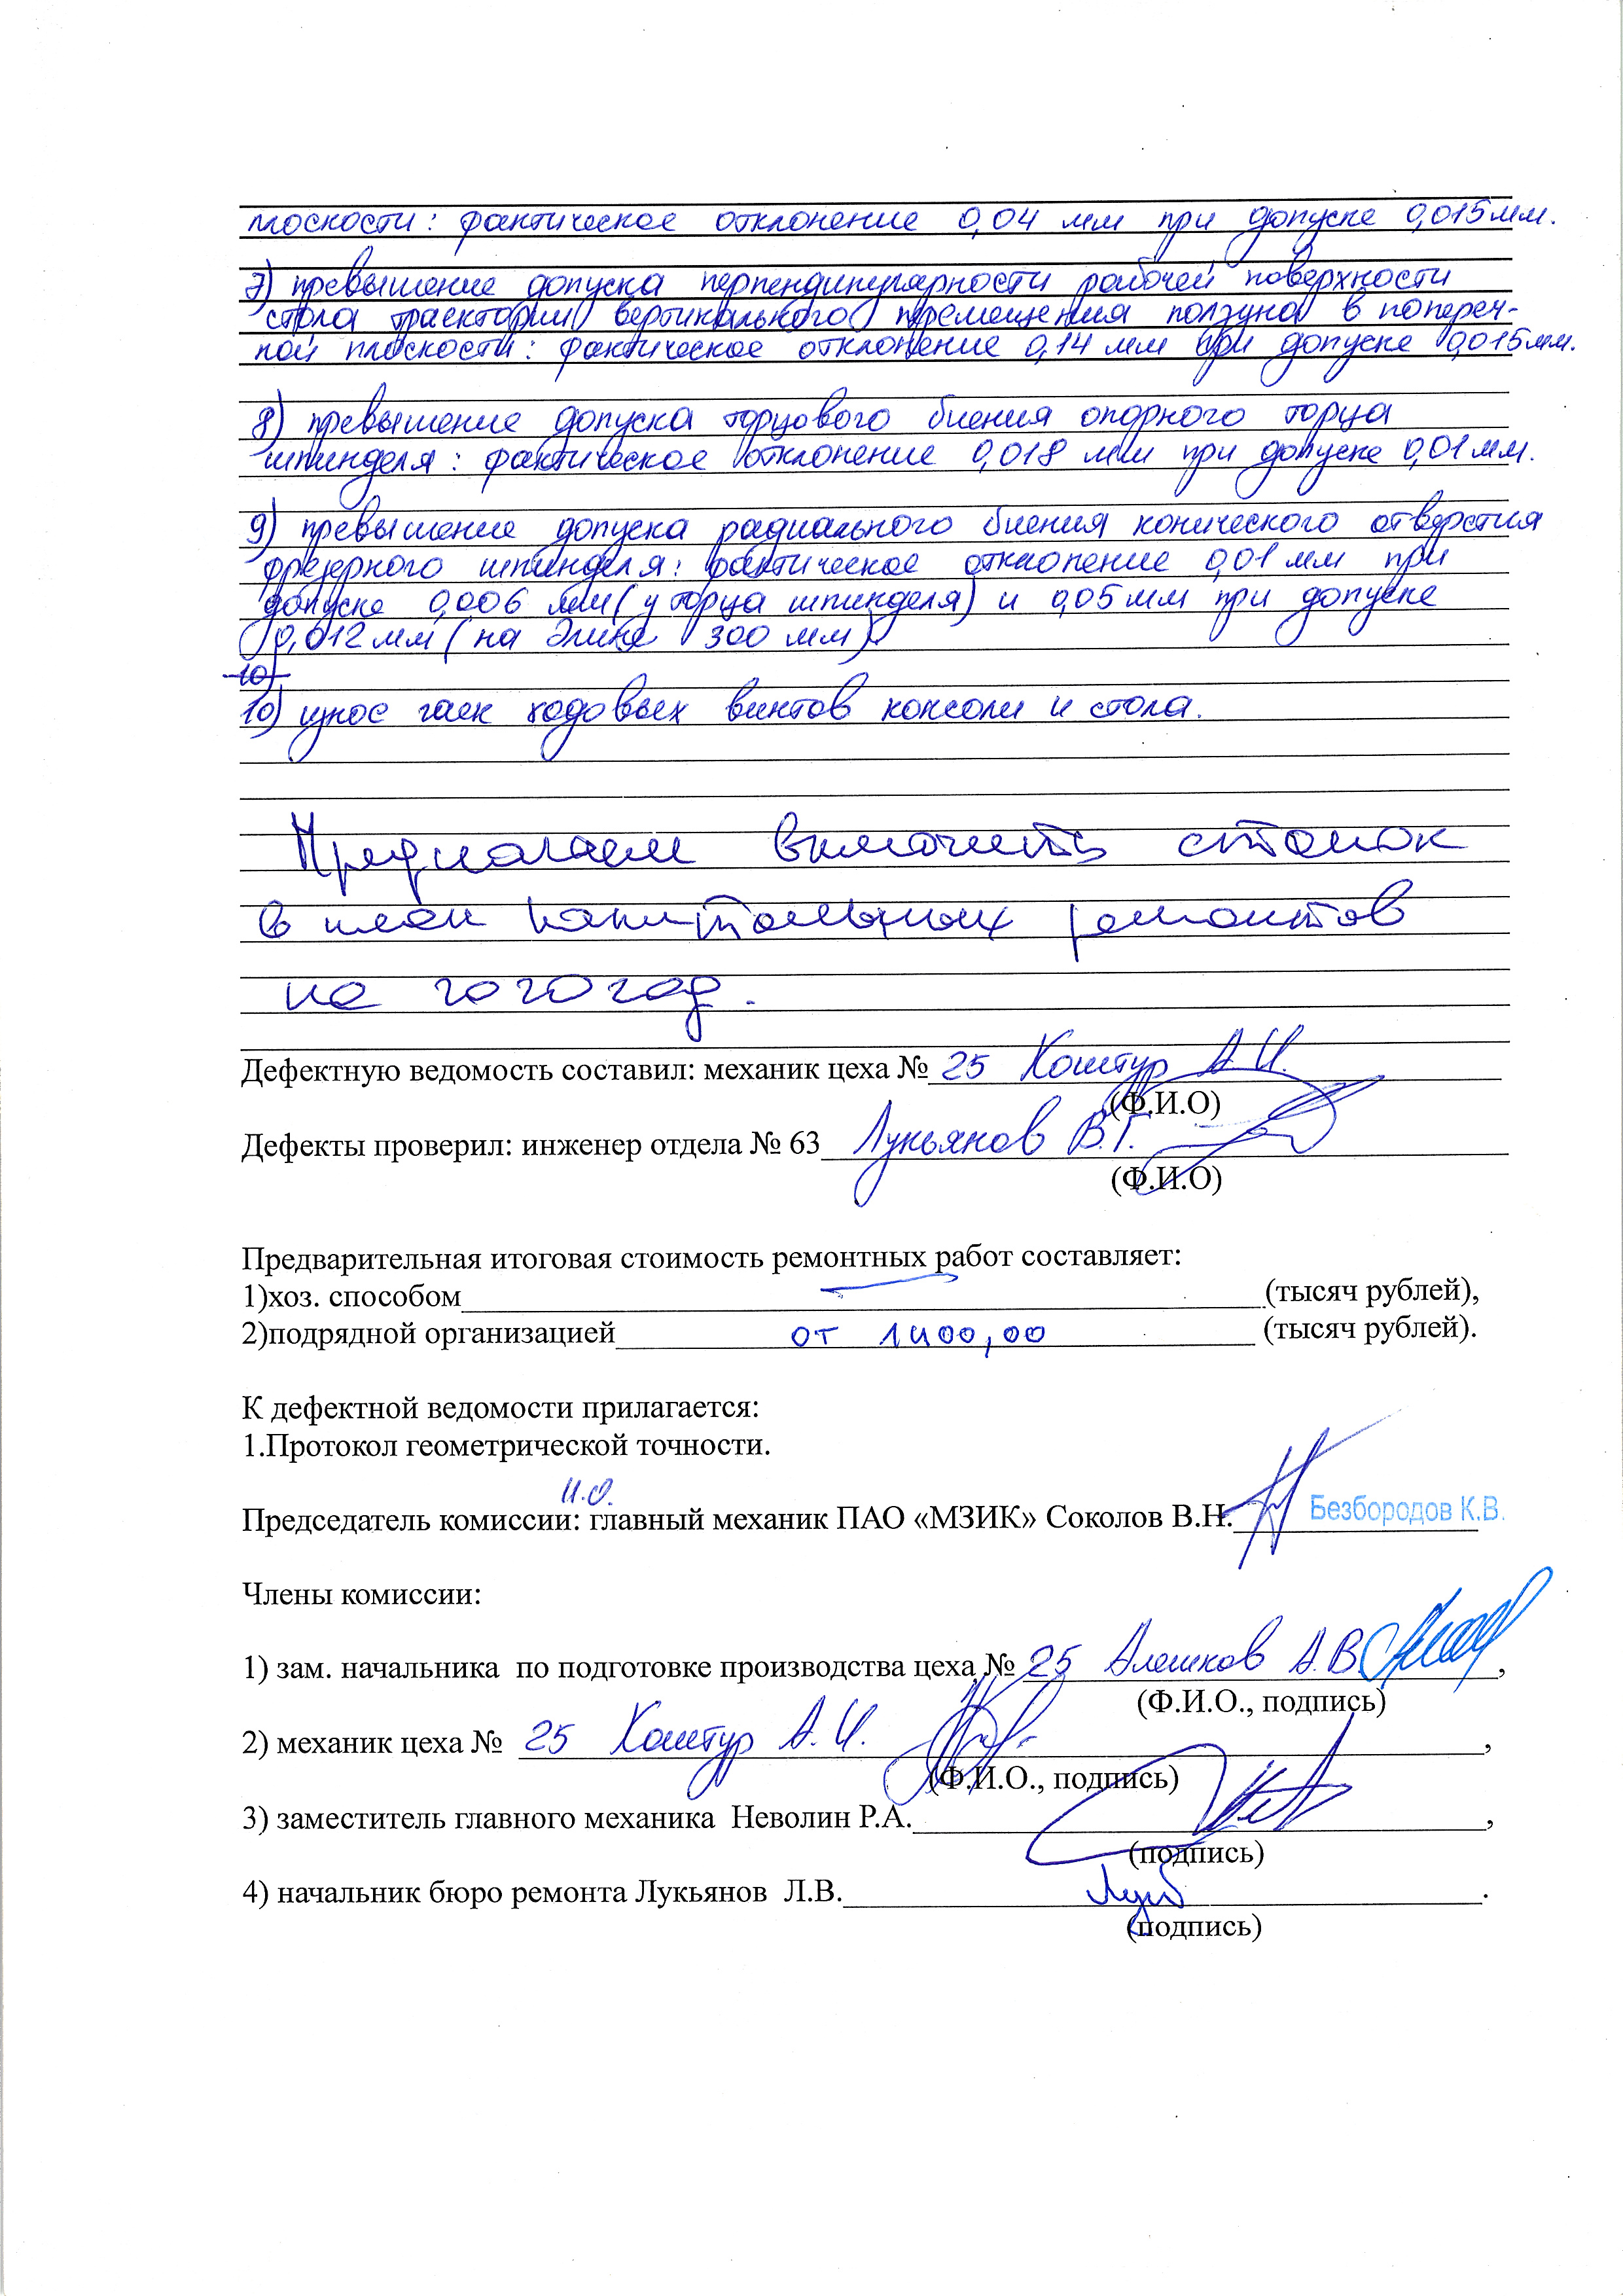 плоскости: фактическое отклонение 0,04 мм при допуске 0,015мм.
7) превышение допуска перпендикулярности рабочей поверхности
стола траектории вертикального перемещения ползуна в попереч-
ной плоскости: фактическое отклонение 0,14 мм при допуске 0,015мм.
8) превышение допуска торцового биения опорного торца
шпинделя: фактическое отклонение 0,018 мм при допуске 0,01мм.
9) превышение допуска радиального биения конического отверстия
фрезерного шпинделя: фактическое отклонение 0,01 мм при
допуске 0,006 мм (у торца шпинделя) и 0,05 мм при допуске
0,012 мм (на длине 300 мм)
10)
10) износ гаек ходовых винтов консоли и стола.
Предлагаем включить станок
в план капитальных ремонтов
на 2020 год.
Дефектную ведомость составил: механик цеха № 25 Коштур А.И.
(Ф.И.О)
Дефекты проверил: инженер отдела № 63 Лукьянов В.Г.
(Ф.И.О)
Предварительная итоговая стоимость ремонтных работ составляет:
1)хоз. способом — (тысяч рублей),
2)подрядной организацией от 1400,00 (тысяч рублей).
К дефектной ведомости прилагается:
1.Протокол геометрической точности.
и.о.
Председатель комиссии: главный механик ПАО «МЗИК» Соколов В.Н. Безбородов К.В.
Члены комиссии:
1) зам. начальника по подготовке производства цеха № 25 Алешков А.В.,
(Ф.И.О., подпись)
2) механик цеха № 25 Коштур А.И.,
(Ф.И.О., подпись)
3) заместитель главного механика Неволин Р.А.,
(подпись)
4) начальник бюро ремонта Лукьянов Л.В.
(подпись)